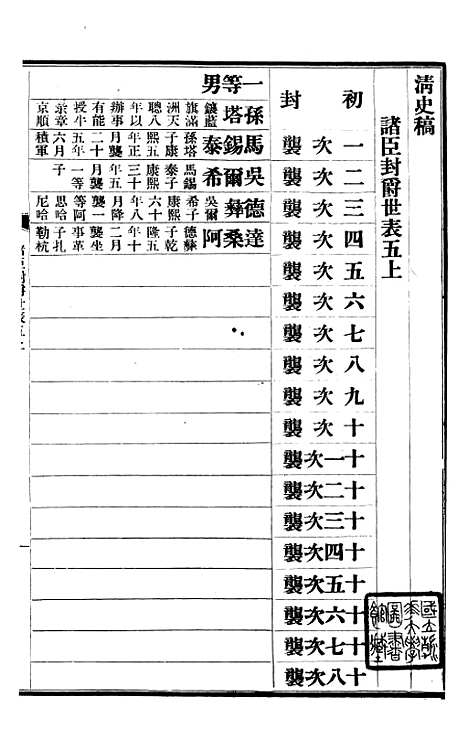 清史稿
諸臣封爵世表五上
初封
一次襲
二次襲
三次襲
四次襲
五次襲
六次襲
七次襲
八次襲
九次襲
十次襲
十一次襲
十二次襲
十三次襲
十四次襲
十五次襲
十六次襲
十七次襲
十八次襲
一等男
孫塔
鑲藍
旗滿
洲天
聰八
年以
辦事
有能
授牛
彔章
京順
馬錫泰
孫塔
子康
熙五
年正
月襲
二十
五年
六月
積軍
吳爾希
馬錫
泰子
康熙
三十
年五
月襲
一等
子
德彝
吳爾
希子
康熙
六十
年八
月降
襲一
等阿
思哈
尼哈
達桑阿
德彝
子乾
隆五
年十
二月
襲坐
事革
子扎
勒杭